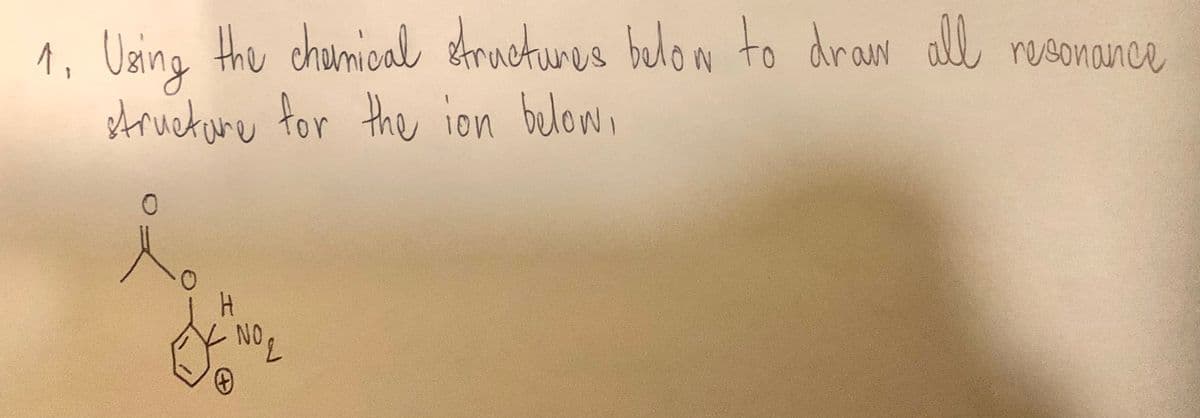 1. Using the chemical structures below to draw all resonance
structure for the ion below.
O
O
H
NO2
+